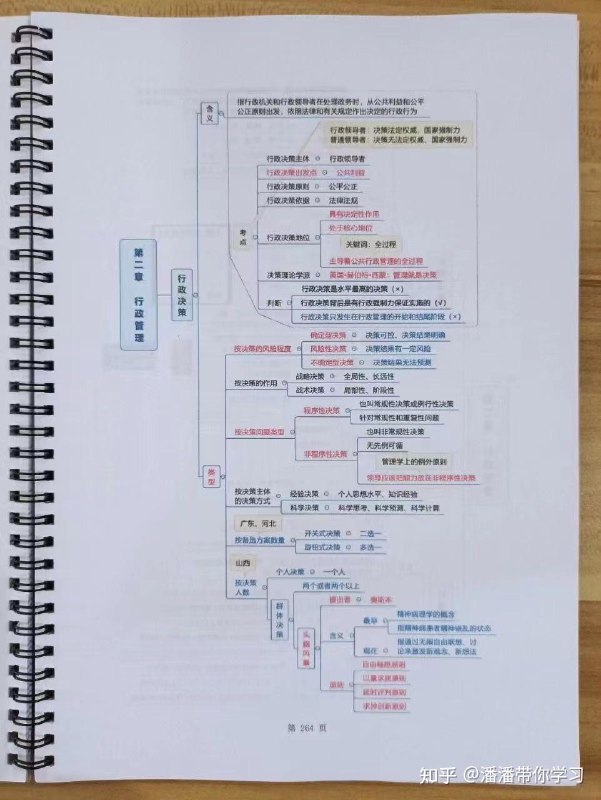 含义
指行政机关和行政领导者在处理政务时，从公共利益和公平
公正原则出发，依照法律和有关规定作出决定的行政行为
行政领导者：决策法定权威、国家强制力
普通领导者：决策无法定权威、国家强制力
考点
行政决策主体
行政领导者
行政决策出发点
公共利益
行政决策原则
公平公正
行政决策依据
法律法规
行政决策地位
具有决定性作用
处于核心地位
关键词：全过程
主导着公共行政管理的全过程
决策理论学派
美国·赫伯特·西蒙：管理就是决策
判断
行政决策是水平最高的决策（×）
行政决策背后是有行政强制力保证实施的（√）
行政决策只发生在行政管理的开始和结尾阶段（×）
第二章 行政管理
行政决策
类型
按决策的风险程度
确定型决策
决策可控、决策结果明确
风险性决策
决策结果有一定风险
不确定型决策
决策结果无法预测
按决策的作用
战略决策
全局性、长远性
战术决策
局部性、阶段性
按决策问题类型
程序性决策
也叫常规性决策或例行性决策
针对常规性和重复性问题
非程序性决策
也叫非常规性决策
无先例可循
管理学上的例外原则
领导应该把精力放在非程序性决策
按决策主体
的决策方式
经验决策
个人思想水平、知识经验
科学决策
科学思考、科学预测、科学计算
广东、河北
按备选方案数量
开关式决策
二选一
旋钮式决策
多选一
山西
按决策
人数
个人决策
一个人
群体决策
两个或者两个以上
头脑风暴
提出者
奥斯本
含义
最早
精神病理学的概念
指精神病患者精神错乱的状态
现在
指通过无限自由联想、讨
论来激发新观念、新想法
原则
自由畅想原则
以量求质原则
延时评判原则
求异创新原则
第 264 页
知乎 @潘潘带你学习